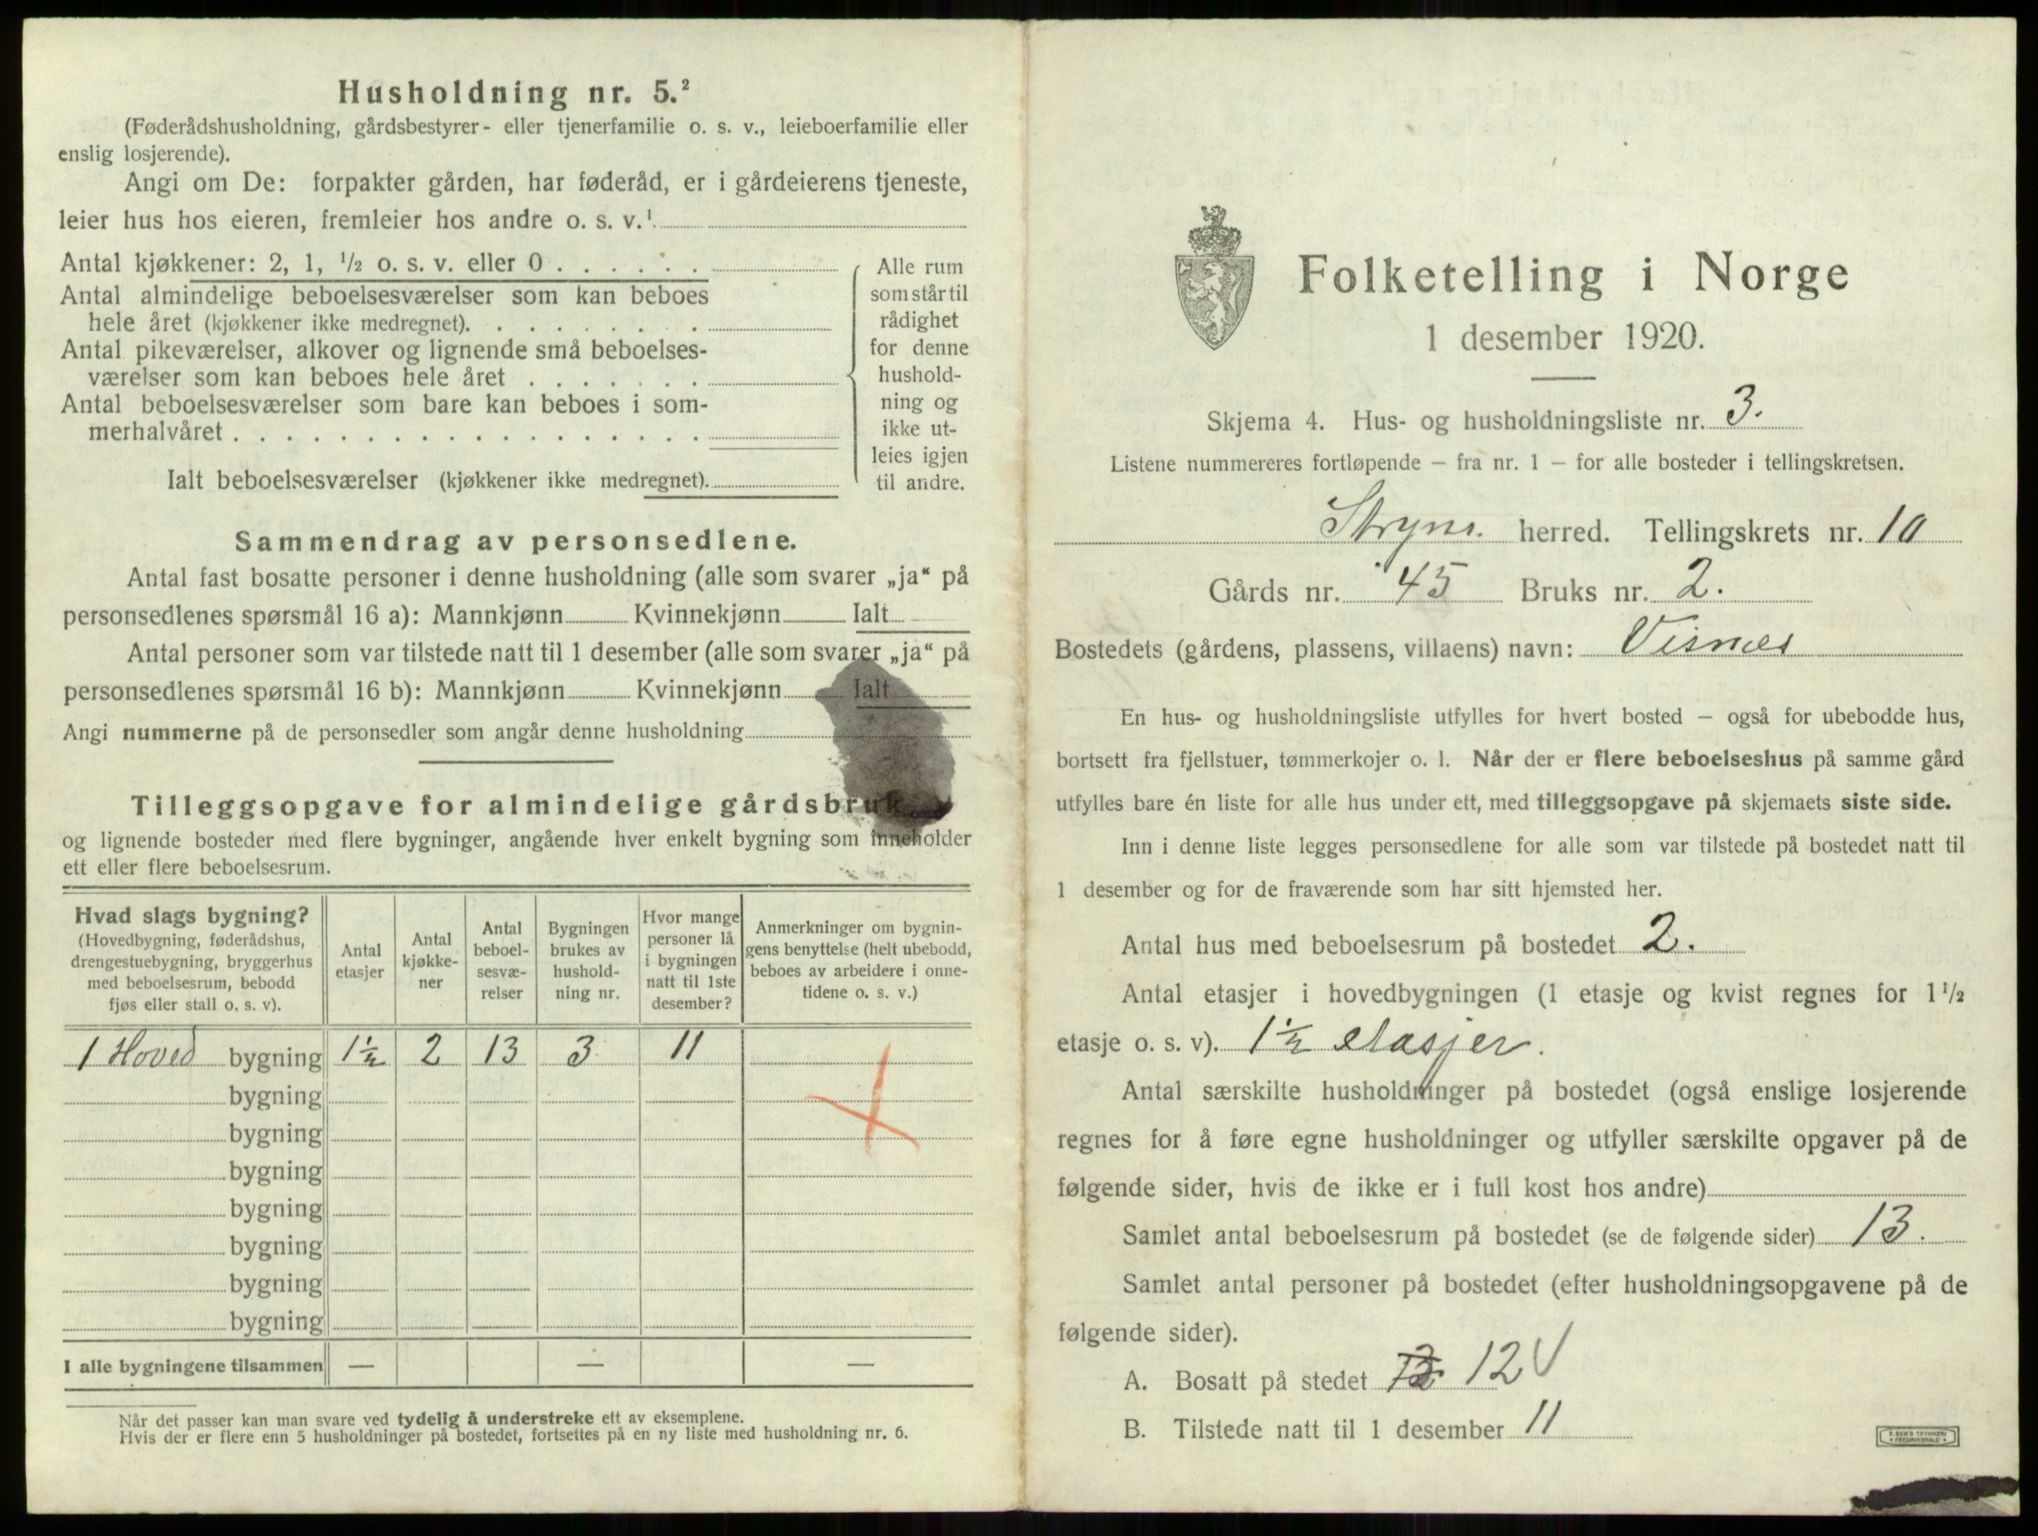 Husholdning nr. 5.²
(Føderådshusholdning, gårdsbestyrer- eller tjenerfamilie o. s. v., leieboerfamilie eller
enslig losjerende).
Angi om De: forpakter gården, har føderåd, er i gårdeierens tjeneste,
leier hus hos eieren, fremleier hos andre o. s. v.¹
Antal kjøkkener: 2, 1, ½ o. s. v. eller 0 . . . . . .
Antal almindelige beboelsesværelser som kan beboes
hele året (kjøkkener ikke medregnet). . . . . . . . .
Antal pikeværelser, alkover og lignende små beboelses-
værelser som kan beboes hele året . . . . . . .
Antal beboelsesværelser som bare kan beboes i som-
merhalvåret . . . . . . . . . . . . . . . . . .
Ialt beboelsesværelser (kjøkkener ikke medregnet).
Alle rum
som står til
rådighet
for denne
hushold-
ning og
ikke ut-
leies igjen
til andre.
Sammendrag av personsedlene.
Antal fast bosatte personer i denne husholdning (alle som svarer „ja“ på
personsedlenes spørsmål 16 a): Mannkjønn Kvinnekjønn Ialt
Antal personer som var tilstede natt til 1 desember (alle som svarer „ja“ på
personsedlenes spørsmål 16 b): Mannkjønn Kvinnekjønn Ialt
Angi nummerne på de personsedler som angår denne husholdning
Tilleggsopgave for almindelige gårdsbruk
og lignende bosteder med flere bygninger, angående hver enkelt bygning som inneholder
ett eller flere beboelsesrum.
Hvad slags bygning?
(Hovedbygning, føderådshus,
drengestuebygning, bryggerhus
med beboelsesrum, bebodd
fjøs eller stall o. s. v).
Antal
etasjer
Antal
kjøkke-
ner
Antal
beboel-
sesvæ-
relser
Bygningen
brukes av
hushold-
ning nr.
Hvor mange
personer lå
i bygningen
natt til 1ste
desember?
Anmerkninger om bygnin-
gens benyttelse (helt ubebodd,
beboes av arbeidere i onne-
tidene o. s. v.)
1 Hoved bygning 1½ 2 13 3 11
bygning
bygning
bygning
bygning
bygning
bygning
bygning
I alle bygningene tilsammen — — —
Når det passer kan man svare ved tydelig å understreke ett av eksemplene.
Hvis der er flere enn 5 husholdninger på bostedet, fortsettes på en ny liste med husholdning nr. 6.
Folketelling i Norge
1 desember 1920.
Skjema 4. Hus- og husholdningsliste nr. 3.
Listene nummereres fortløpende – fra nr. 1 – for alle bosteder i tellingskretsen.
Stryn. herred. Tellingskrets nr. 10
Gårds nr. 45 Bruks nr. 2.
Bostedets (gårdens, plassens, villaens) navn: Visnes
En hus- og husholdningsliste utfylles for hvert bosted – også for ubebodde hus,
bortsett fra fjellstuer, tømmerkojer o. l. Når der er flere beboelseshus på samme gård
utfylles bare én liste for alle hus under ett, med tilleggsopgave på skjemaets siste side.
Inn i denne liste legges personsedlene for alle som var tilstede på bostedet natt til
1 desember og for de fraværende som har sitt hjemsted her.
Antal hus med beboelsesrum på bostedet 2.
Antal etasjer i hovedbygningen (1 etasje og kvist regnes for 1 ½
etasje o. s. v). 1½ etasjer.
Antal særskilte husholdninger på bostedet (også enslige losjerende
regnes for å føre egne husholdninger og utfyller særskilte opgaver på de
følgende sider, hvis de ikke er i full kost hos andre)
Samlet antal beboelsesrum på bostedet (se de følgende sider) 13.
Samlet antal personer på bostedet (efter husholdningsopgavene på de
følgende sider).
A. Bosatt på stedet 12 V
B. Tilstede natt til 1 desember 11